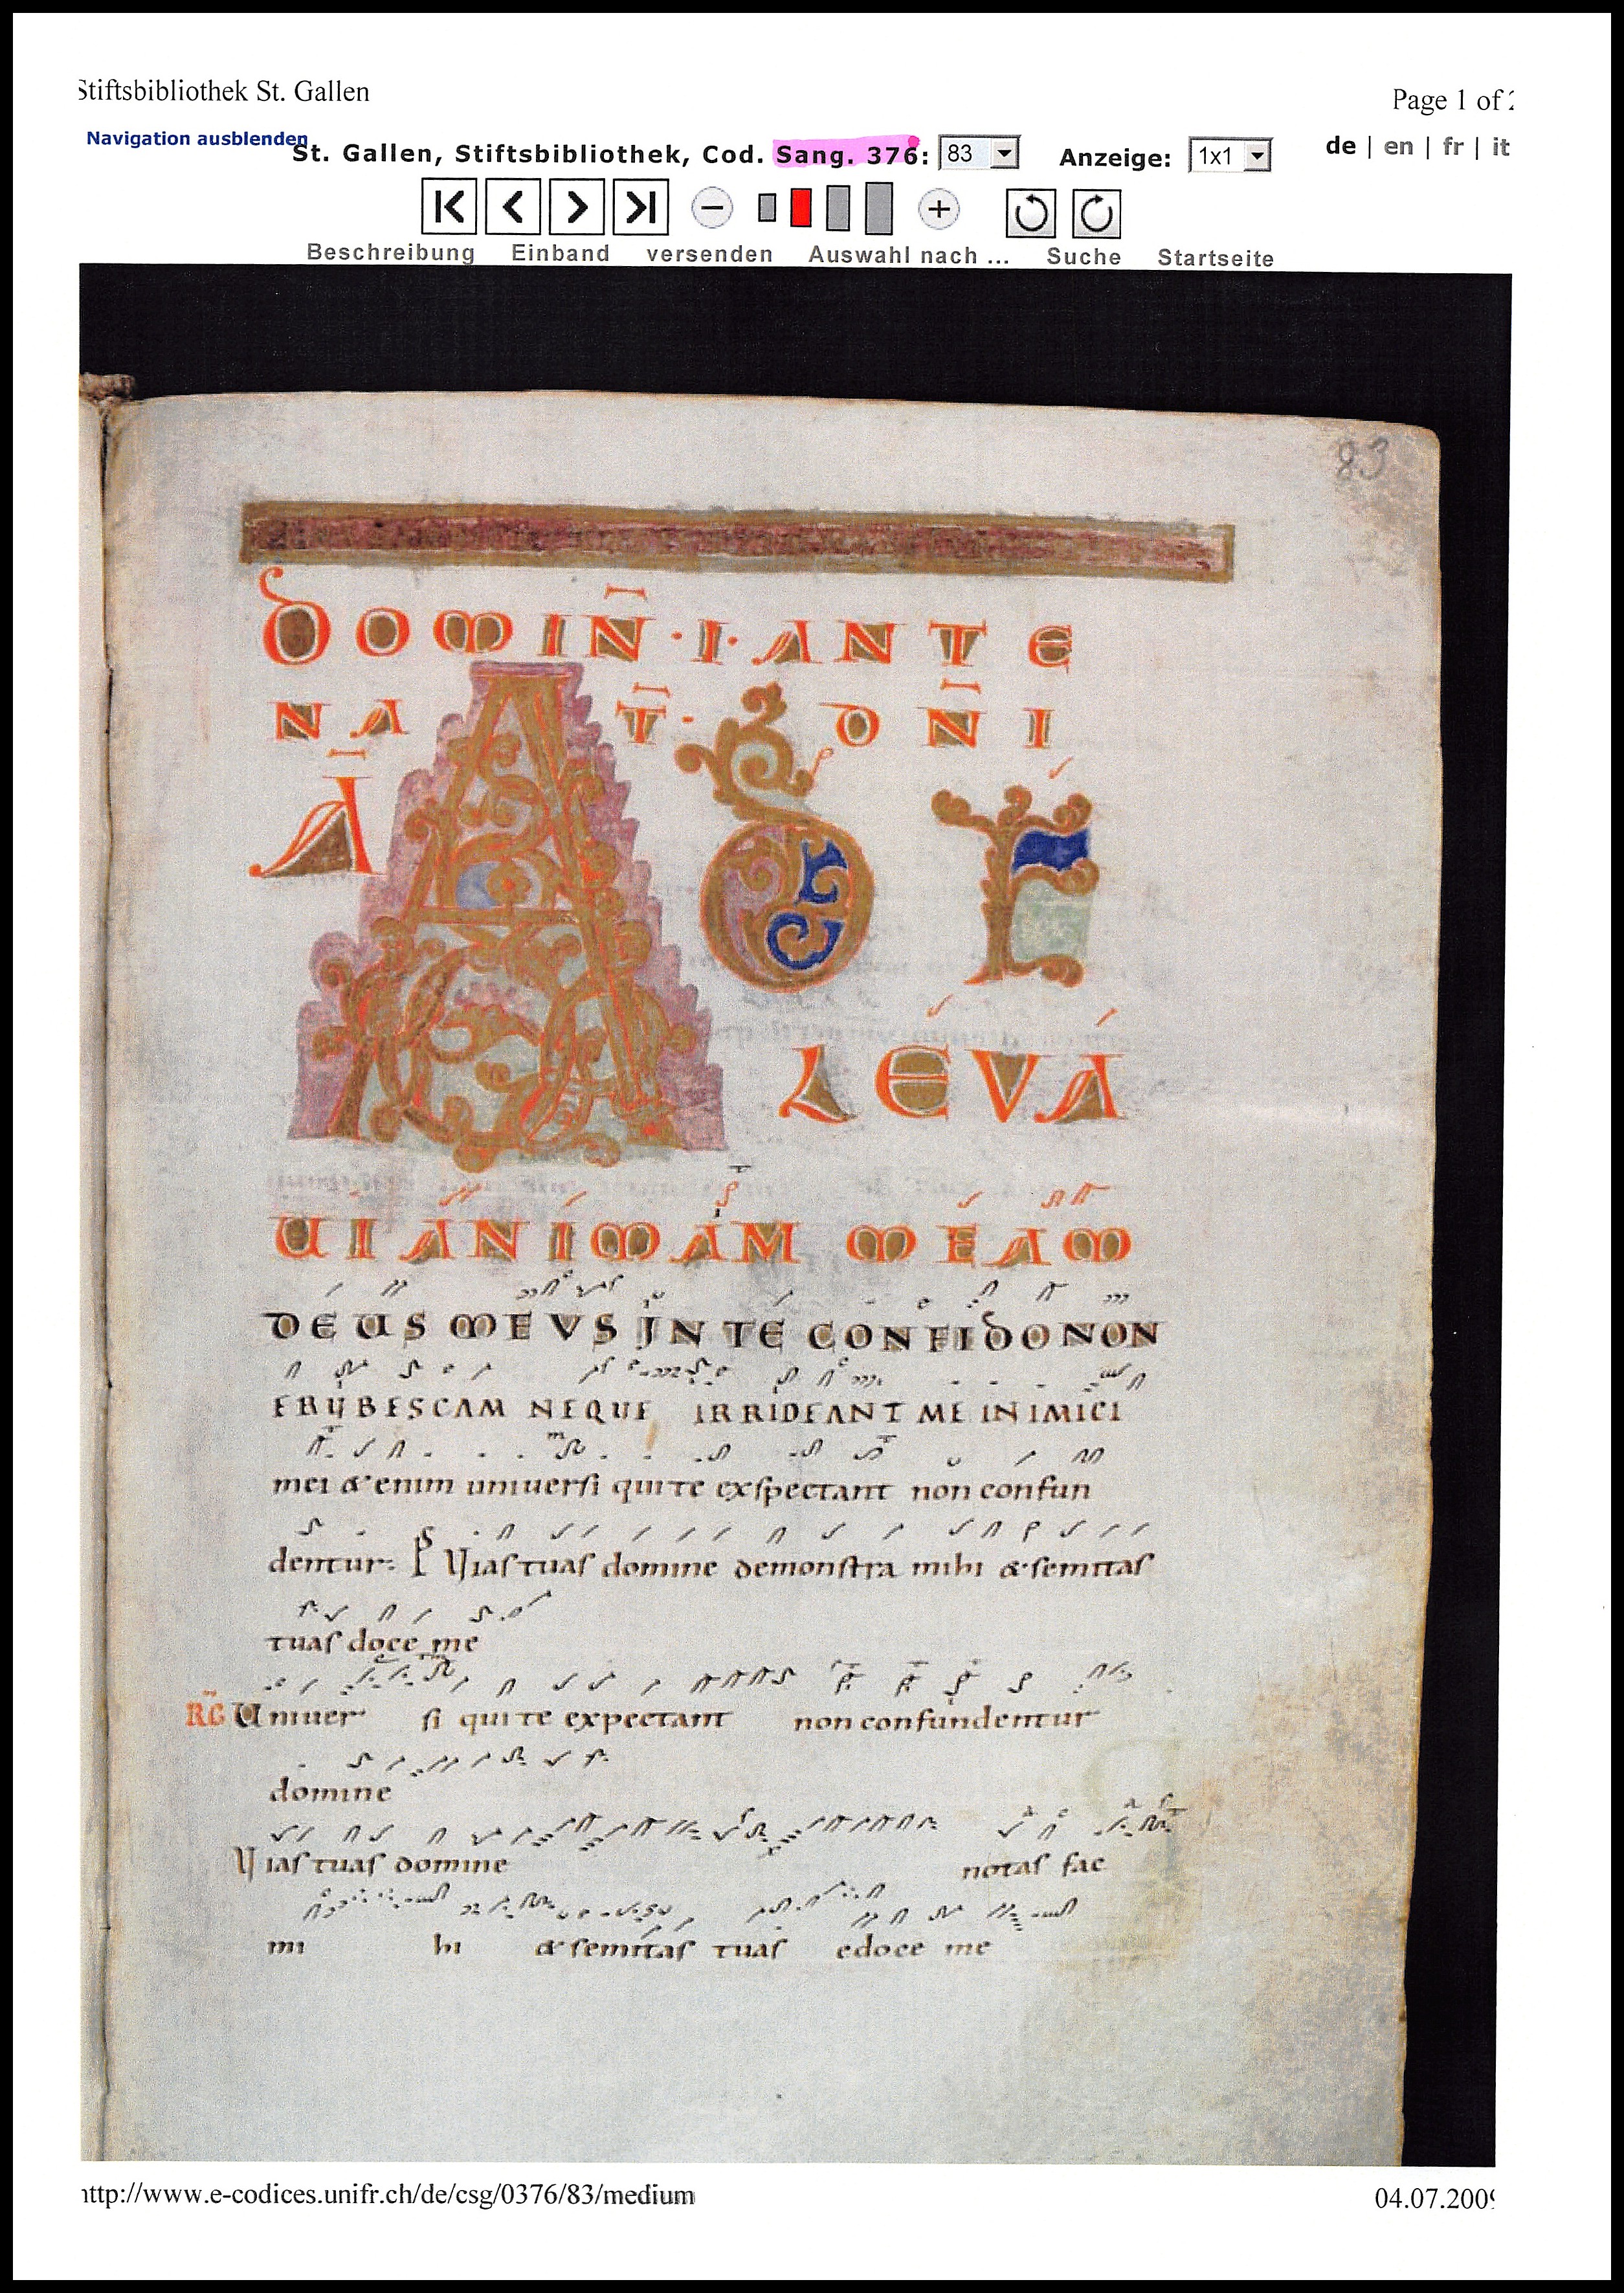 Stiftsbibliothek St. Gallen
Page 1 of
Navigation ausblenden
St. Gallen, Stiftsbibliothek, Cod. Sang. 376: 83 Anzeige: 1x1 de | en | fr | it
Beschreibung Einband versenden Auswahl nach ... Suche Startseite
83
DOMIN̄·I·ANTE
NAT̄· DN̄I
Ā
AD TE
LEVA
UI ANIMAM MEAM
DEUS MEVS IN TE CONFIDO NON
ERUBESCAM NEQUE IRRIDEANT ME INIMICI
mei & enim uniuersi qui te exspectant non confun
dentur: Ps Vias tuas domine demonstra mihi & semitas
tuas doce me
RG Uniuer si qui te expectant non confundentur
domine
Vias tuas domine notas fac
mi hi & semitas tuas edoce me
http://www.e-codices.unifr.ch/de/csg/0376/83/medium
04.07.2009